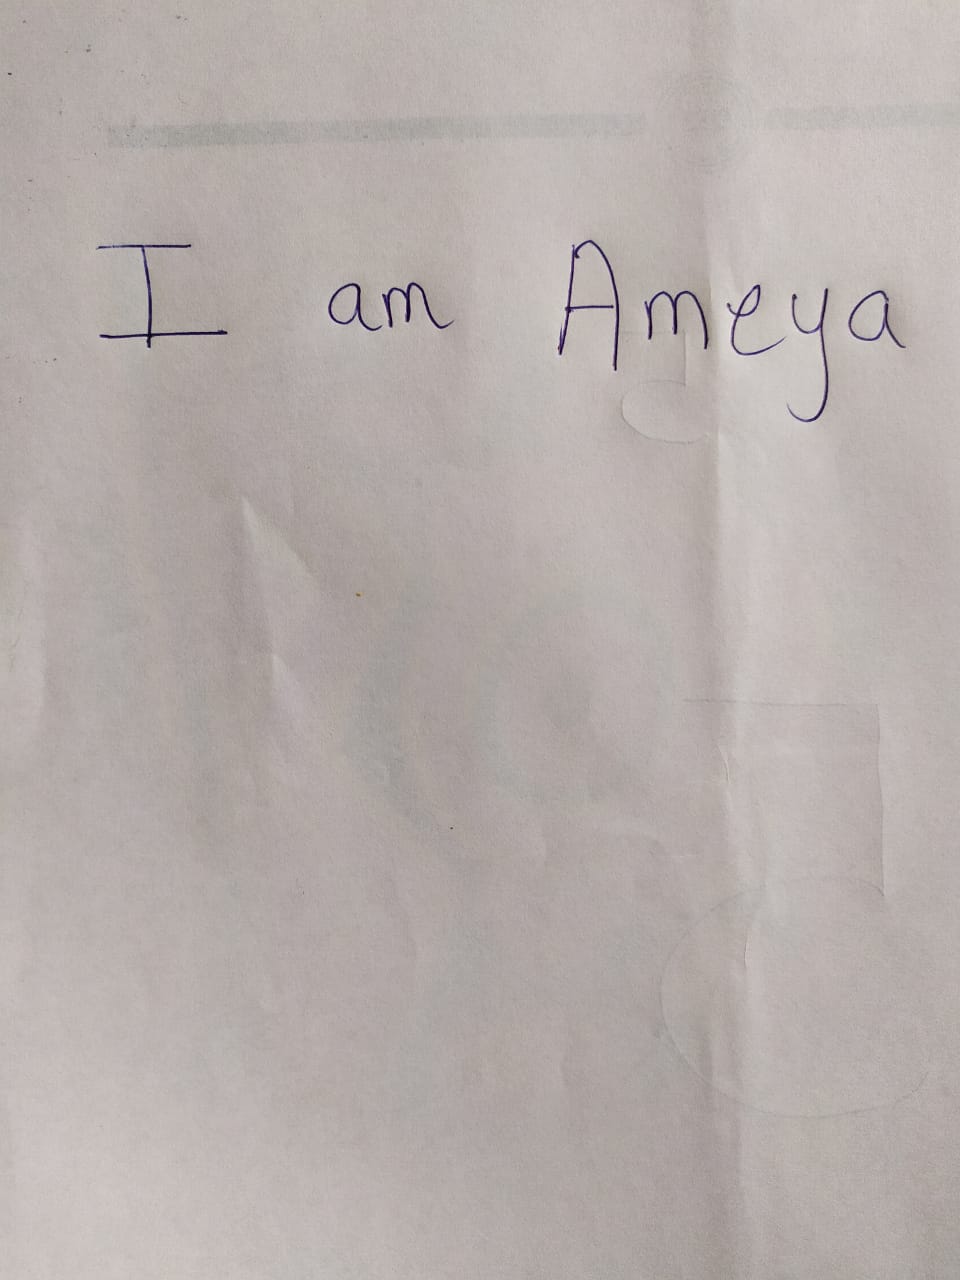 I am Ameya